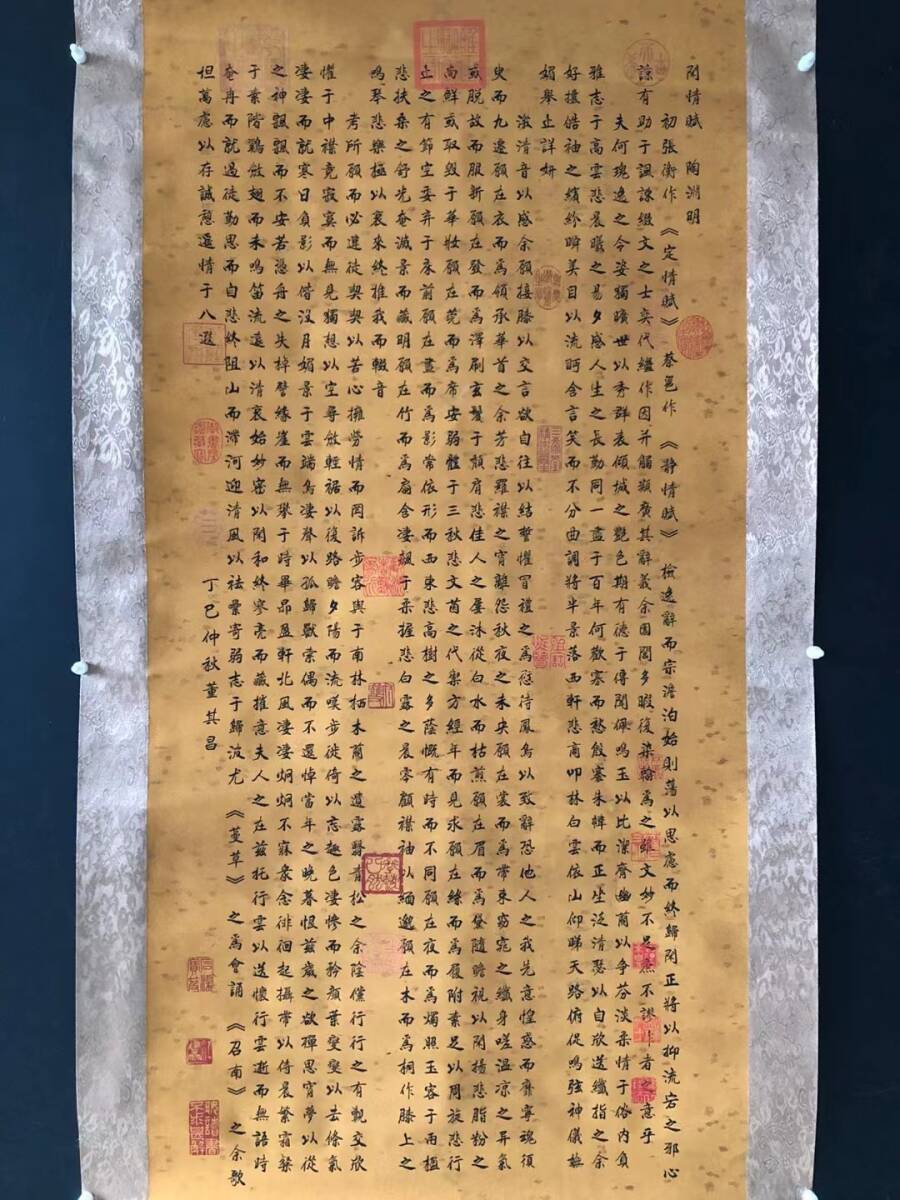 閑情賦 陶淵明
初張衡作《定情賦》蔡邕作《靜情賦》檢逸辭而宗澹泊始則蕩以思慮而終歸閑正將以抑流宕之邪心
諒有助于諷諫綴文之士奕代繼作因并觸類廣其辭義余園閭多暇復染翰為之雖文妙不足庶不謬作者之意乎
夫何瑰逸之令姿獨曠世以秀群表傾城之艷色期有德于傳聞佩鳴玉以比潔齊幽蘭以爭芬淡柔情于俗內負
雅志于高雲悲晨曦之易夕感人生之長勤同一盡于百年何歡寡而愁殷褰朱幃而正坐泛清瑟以自欣送纖指之余
好攘皓袖之繽紛瞬美目以流眄含言笑而不分曲調將半景落西軒悲商叩林白雲依山仰睇天路俯促鳴弦神儀嫵
媚舉止詳妍
激清音以感余願接膝以交言欲自往以結誓懼冒禮之為愆待鳳鳥以致辭恐他人之我先意惶惑而靡寧魂須
臾而九遷願在衣而為領承華首之余芳悲羅襟之宵離怨秋夜之未央願在裳而為帶束窈窕之纖身嗟溫涼之異氣
或脫故而服新願在發而為澤刷玄鬢于頹肩悲佳人之屢沐從白水而枯煎願在眉而為黛隨瞻視以閑揚悲脂粉之
尚鮮或取毀于華妝願在莞而為席安弱體于三秋悲文茵之代禦方經年而見求願在絲而為履附素足以周旋悲行
止之有節空委棄于床前願在晝而為影常依形而西東悲高樹之多蔭慨有時而不同願在夜而為燭照玉容于兩楹
悲扶桑之舒光奄滅景而藏明願在竹而為扇含淒飆于柔握悲白露之晨零顧襟袖以緬邈願在木而為桐作膝上之
鳴琴悲樂極以哀來終推我而輟音
考所願而必違徒契契以苦心擁勞情而罔訴步容與于南林栖木蘭之遺露翳青松之余陰儻行行之有覿交欣
懼于中襟竟寂寞而無見獨想以空尋斂輕裾以復路瞻夕陽而流嘆步徙倚以忘趣色淒慘而矜顏葉燮燮以去條氣
淒淒而就寒日負影以偕沒月媚景于雲端鳥淒聲以孤歸獸索偶而不還悼當年之晚暮恨茲歲之欲殫思宵夢以從
之神飄飄而不安若憑舟之失棹譬緣崖而無攀于時畢昴盈軒北風淒淒炯炯不寐衆念徘徊起攝帶以伺晨繁霜粲
于素階鷄斂翅而未鳴笛流遠以清哀始妙密以閑和終寥亮而藏摧意夫人之在茲托行雲以送懷行雲逝而無語時
奄冉而就過徒勤思而自悲終阻山而滯河迎清風以祛累寄弱志于歸波尤《蔓草》之為會誦《召南》之余歌
坦萬慮以存誠憩遙情于八遐
丁巳仲秋董其昌